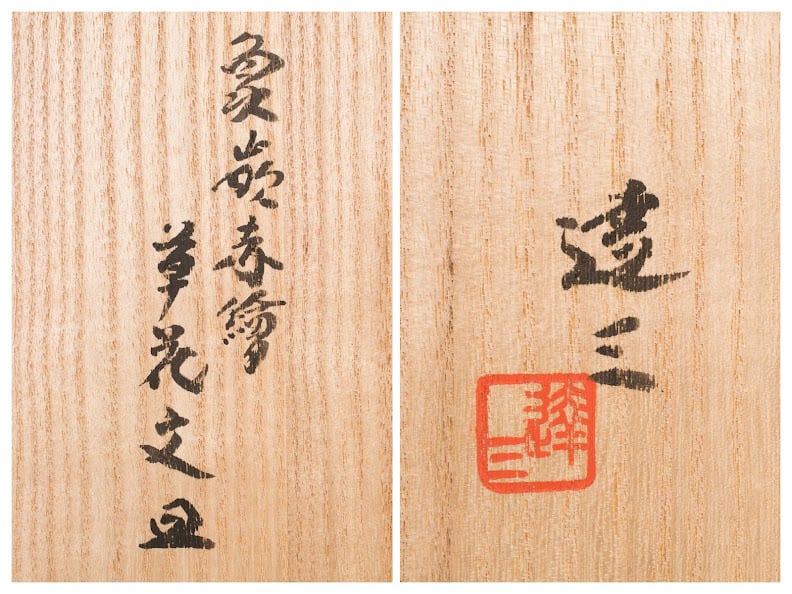 象嵌赤繪
草花文皿
達三
達三